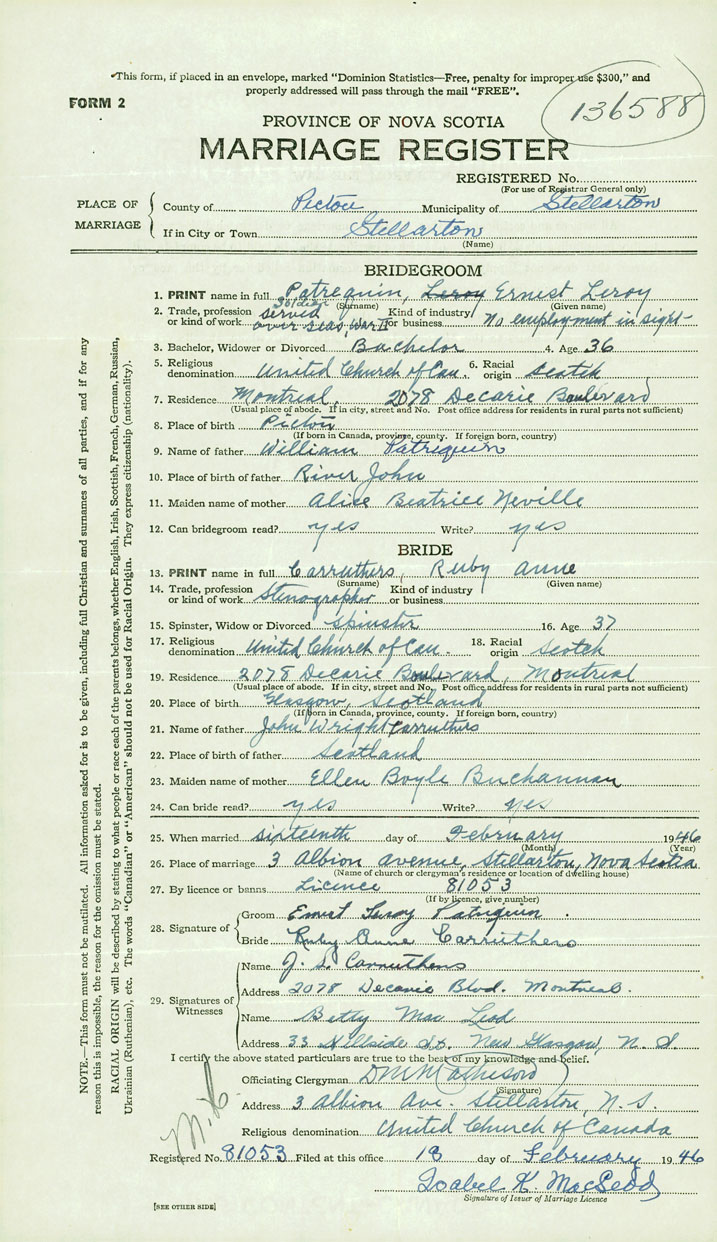 This form, if placed in an envelope, marked “Dominion Statistics—Free, penalty for improper use $300,” and
properly addressed will pass through the mail “FREE”.
FORM 2
136588
PROVINCE OF NOVA SCOTIA
MARRIAGE REGISTER
REGISTERED No.
(For use of Registrar General only)
PLACE OF MARRIAGE
County of Pictou Municipality of Stellarton
If in City or Town Stellarton
(Name)
BRIDEGROOM
1. PRINT name in full Patrequin, Leroy Ernest Leroy
(Surname) (Given name)
2. Trade, profession or kind of work Soldier served over seas, War II Kind of industry or business No employment in sight
3. Bachelor, Widower or Divorced Bachelor 4. Age 36
5. Religious denomination United Church of Can. 6. Racial origin Scotch
7. Residence Montreal, 2078 Decarie Boulevard
(Usual place of abode. If in city, street and No. Post office address for residents in rural parts not sufficient)
8. Place of birth Pictou
(If born in Canada, province, county. If foreign born, country)
9. Name of father William Patrequin
10. Place of birth of father River John
11. Maiden name of mother Alice Beatrice Neville
12. Can bridegroom read? yes Write? yes
BRIDE
13. PRINT name in full Carruthers, Ruby Anne
(Surname) (Given name)
14. Trade, profession or kind of work Stenographer Kind of industry or business
15. Spinster, Widow or Divorced Spinster 16. Age 37
17. Religious denomination United Church of Can. 18. Racial origin Scotch
19. Residence 2078 Decarie Boulevard, Montreal
(Usual place of abode. If in city, street and No. Post office address for residents in rural parts not sufficient)
20. Place of birth Glasgow, Scotland
(If born in Canada, province, county. If foreign born, country)
21. Name of father John Wright Carruthers
22. Place of birth of father Scotland
23. Maiden name of mother Ellen Boyle Buchannan
24. Can bride read? yes Write? yes
25. When married sixteenth day of February 1946
(Month) (Year)
26. Place of marriage 3 Albion Avenue, Stellarton, Nova Scotia
(Name of church or clergyman's residence or location of dwelling house)
27. By licence or banns Licence 81053
(If by licence, give number)
28. Signature of
Groom Ernest Leroy Patrequin.
Bride Ruby Anne Carruthers
29. Signatures of Witnesses
Name J. S. Carruthers
Address 2078 Decarie Blvd. Montreal.
Name Betty Mac Leod
Address 33 Hillside St. New Glasgow, N. S.
I certify the above stated particulars are true to the best of my knowledge and belief.
Officiating Clergyman D M Matheson
(Signature)
Address 3 Albion Ave. Stellarton, N. S.
Religious denomination United Church of Canada
Registered No. 81053 Filed at this office 18 day of February 1946
Isabel K. MacLeod
Signature of Issuer of Marriage Licence
[SEE OTHER SIDE]
NOTE.—This form must not be mutilated. All information asked for is to be given, including full Christian and surnames of all parties, and if for any
reason this is impossible, the reason for the omission must be stated.
RACIAL ORIGIN will be described by stating to what people or race each of the parents belongs, whether English, Irish, Scottish, French, German, Russian,
Ukrainian (Ruthenian), etc. The words “Canadian” or “American” should not be used for Racial Origin. They express citizenship (nationality).